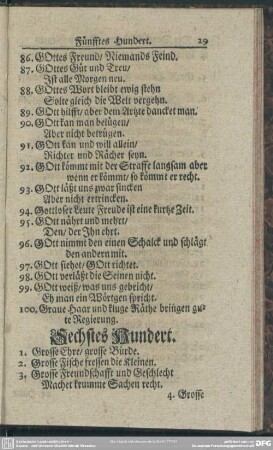 Fünfftes Hundert. 29
86. GOttes Freund/ Niemands Feind.
87. GOttes Güt und Treu/
Ist alle Morgen neu.
88. GOttes Wort bleibt ewig stehn
Solte gleich die Welt vergehn.
89. GOtt hilfft/ aber dem Artzte dancket man.
90. GOtt kan man belügen/
Aber nicht betrügen.
91. GOtt kan und will allein/
Richter und Rächer seyn.
92. GOtt kömmt mit der Straffe langsam aber
wenn er kömmt/ so kömmt er recht.
93. GOtt läßt uns zwar sincken
Aber nicht ertrincken.
94. Gottloser Leute Freude ist eine kurtze Zeit.
95. GOtt nähret und mehret/
Den/ der Ihn ehrt.
96. GOtt nimmt den einen Schalck und schlägt
den andern mit.
97. GOtt siehet/ GOtt richtet.
98. GOtt verläßt die Seinen nicht.
99. GOtt weiß/ was uns gebricht/
Eh man ein Wörtgen spricht.
100. Graue Haar und kluge Räthe bringen gu-
te Regierung.
Sechstes Hundert.
1. Grosse Ehre/ grosse Bürde.
2. Grosse Fische fressen die Kleinen.
3. Grosse Freundschafft und Geschlecht
Machet krumme Sachen recht.
4. Grosse